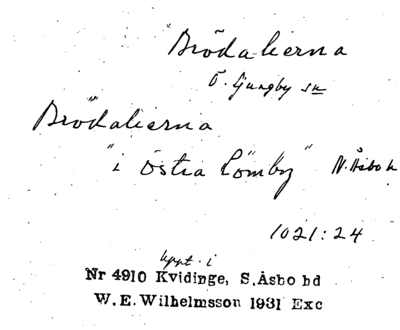 Brödalierna
Ö. Ljungby sn
Brödalierna
"i Östra Lömby" N. Åsbo h
1021:24
uppt. i
Nr 4910 Kvidinge, S.Åsbo hd
W.E.Wilhelmsson 1931 Exc